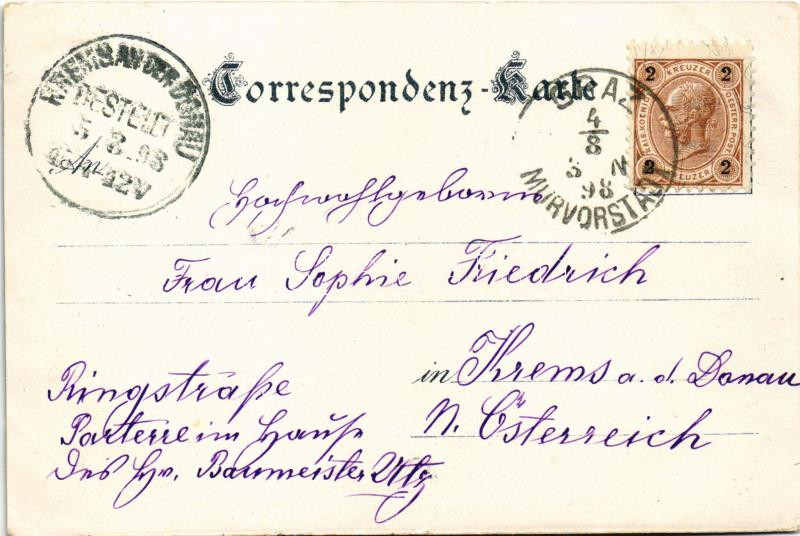 Correspondenz-Karte
KREMS AN DER DONAU
BESTELLT
5/8.98
12V
An
GRAZ
4/8
98
MURVORSTADT
2 KREUZER 2
KAIS. KOENIGL. OESTERR. POST
2 KREUZER 2
Hochwohlgeboren
Frau Sophie Friedrich
in Krems a. d. Donau
N. Österreich
Ringstraße
Parterre im Hause
des H. Baumeister Utz